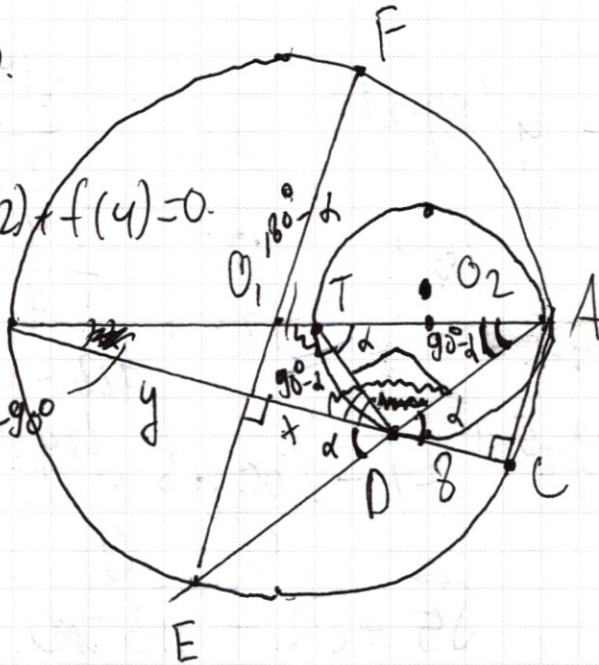 F
2)+f(4)=0.
180°-α
O₁
T
O₂
A
α
90°-α
90°-α
-90°
y
x
α
α
8
D
C
E